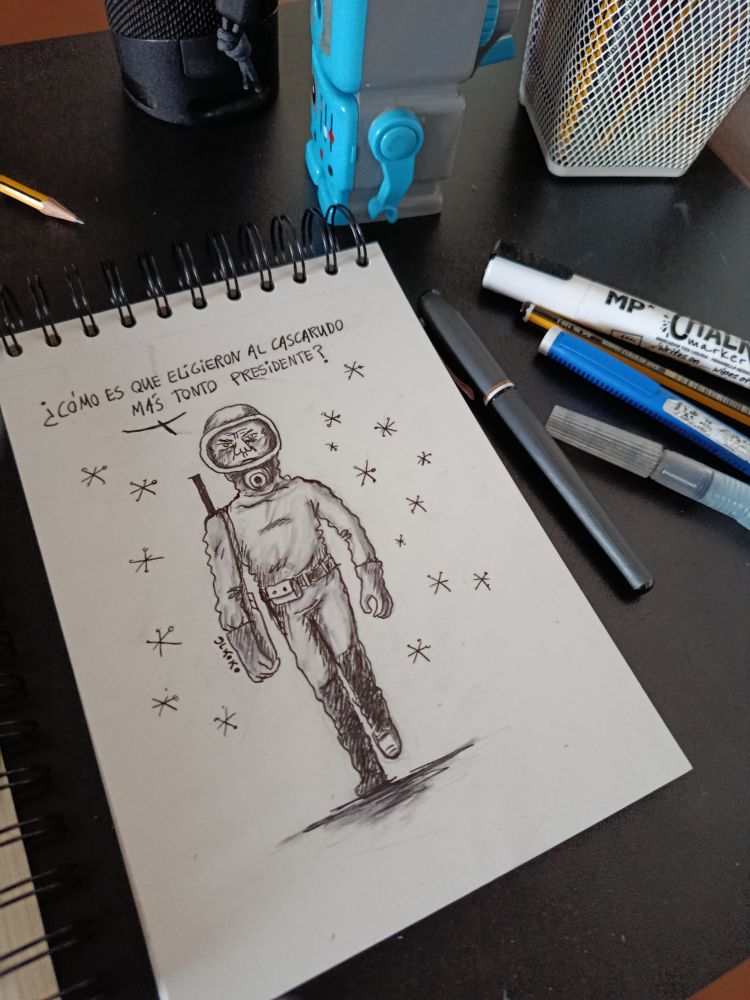 ¿CÓMO ES QUE ELIGIERON AL CASCARUDO
MÁS TONTO PRESIDENTE?
MP
CHALK
marker